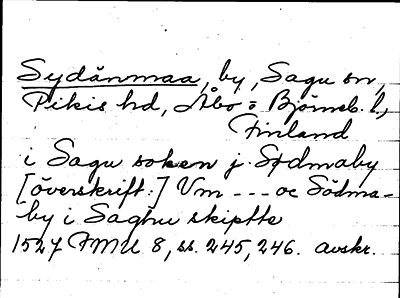 Sydänmaa, by, Sagu sn,
Pikis hd, Åbo o Björneb. l,
Finland
i Sagu soken j. Sødmaby
[överskrift:] Vm --- oc Södma-
by i Saghu skiptte
1527 FMU 8, ss. 245, 246. avskr.